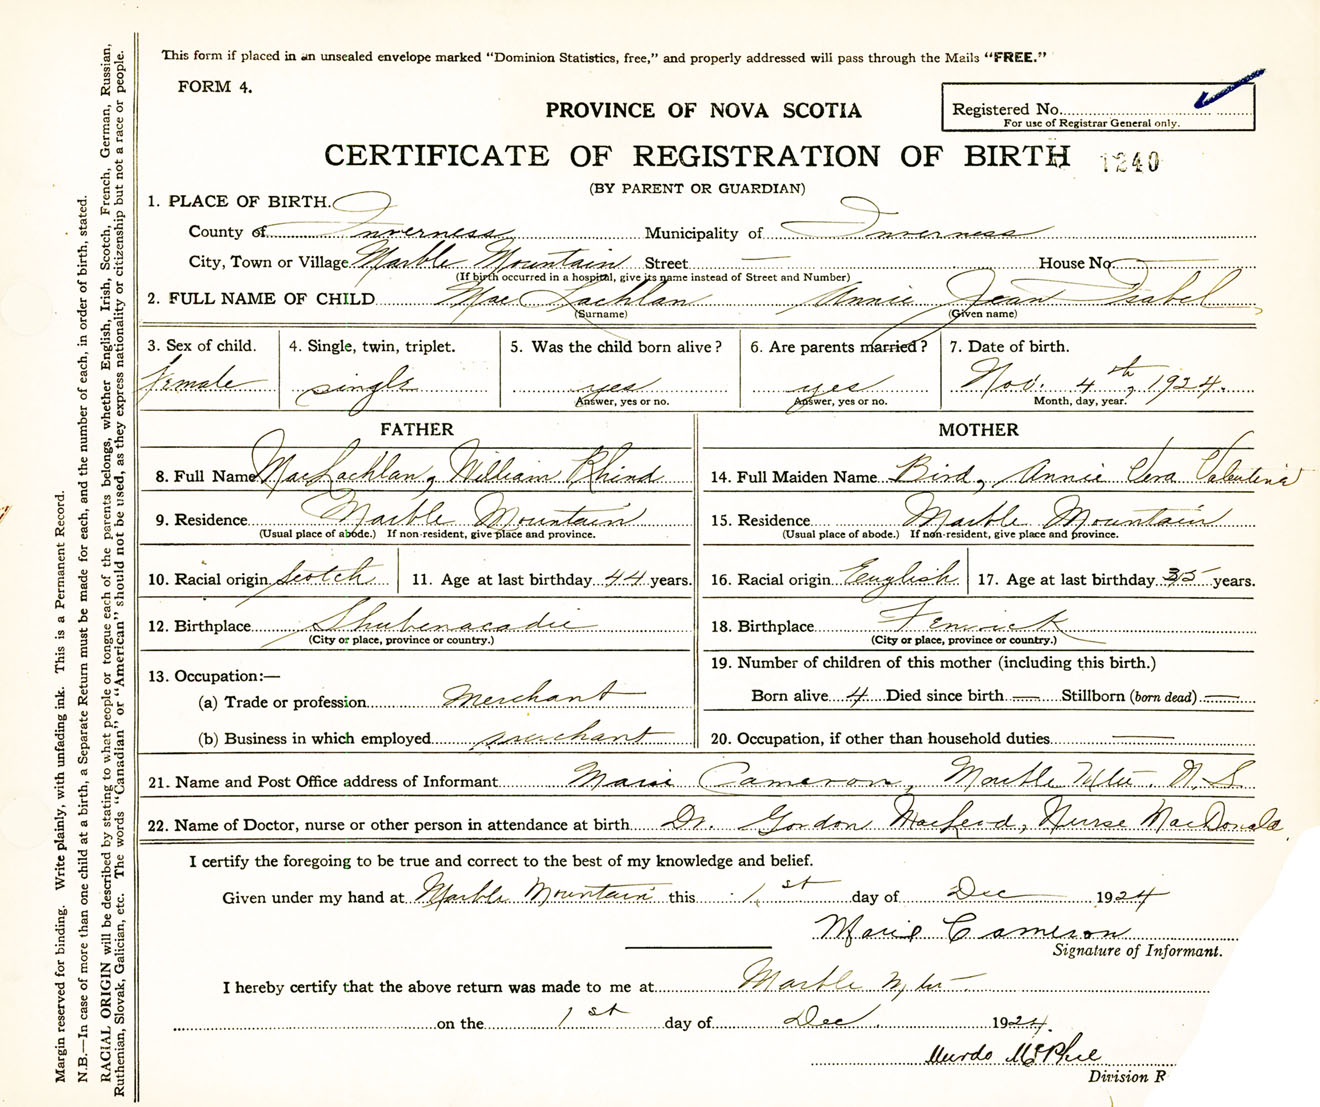 This form if placed in an unsealed envelope marked "Dominion Statistics, free," and properly addressed will pass through the Mails "FREE."
FORM 4.
PROVINCE OF NOVA SCOTIA
Registered No.
For use of Registrar General only.
CERTIFICATE OF REGISTRATION OF BIRTH 1240
(BY PARENT OR GUARDIAN)
1. PLACE OF BIRTH.
County of Inverness Municipality of Inverness
City, Town or Village Marble Mountain Street — House No —
(If birth occurred in a hospital, give its name instead of Street and Number)
2. FULL NAME OF CHILD MacLachlan Annie Jean Isabel
(Surname) (Given name)
3. Sex of child. 4. Single, twin, triplet. 5. Was the child born alive? 6. Are parents married? 7. Date of birth.
Female single yes yes Nov. 4th, 1924.
Answer, yes or no. Answer, yes or no. Month, day, year.
FATHER MOTHER
8. Full Name MacLachlan, William Rhind 14. Full Maiden Name Bird, Annie Vera Valentina
9. Residence Marble Mountain 15. Residence Marble Mountain
(Usual place of abode.) If non-resident, give place and province. (Usual place of abode.) If non-resident, give place and province.
10. Racial origin Scotch 11. Age at last birthday 44 years. 16. Racial origin English 17. Age at last birthday 35 years.
12. Birthplace Shubenacadie 18. Birthplace Fenwick
(City or place, province or country.) (City or place, province or country.)
13. Occupation:— 19. Number of children of this mother (including this birth.)
(a) Trade or profession Merchant Born alive 4 Died since birth — Stillborn (born dead) —
(b) Business in which employed merchant 20. Occupation, if other than household duties —
21. Name and Post Office address of Informant Marie Cameron, Marble Mtn. N.S.
22. Name of Doctor, nurse or other person in attendance at birth Dr. Gordon MacLeod, Nurse MacDonald.
I certify the foregoing to be true and correct to the best of my knowledge and belief.
Given under my hand at Marble Mountain this 1st day of Dec 1924
Marie Cameron
Signature of Informant.
I hereby certify that the above return was made to me at Marble Mtn
on the 1st day of Dec. 1924.
Murdo McPhee
Division R
Margin reserved for binding. Write plainly, with unfading ink. This is a Permanent Record.
N.B.—In case of more than one child at a birth, a Separate Return must be made for each, and the number of each, in order of birth, stated.
RACIAL ORIGIN will be described by stating to what people or tongue each of the parents belongs, whether English, Irish, Scotch, French, German, Russian,
Ruthenian, Slovak, Galician, etc. The words "Canadian" or "American" should not be used, as they express nationality or citizenship but not a race or people.